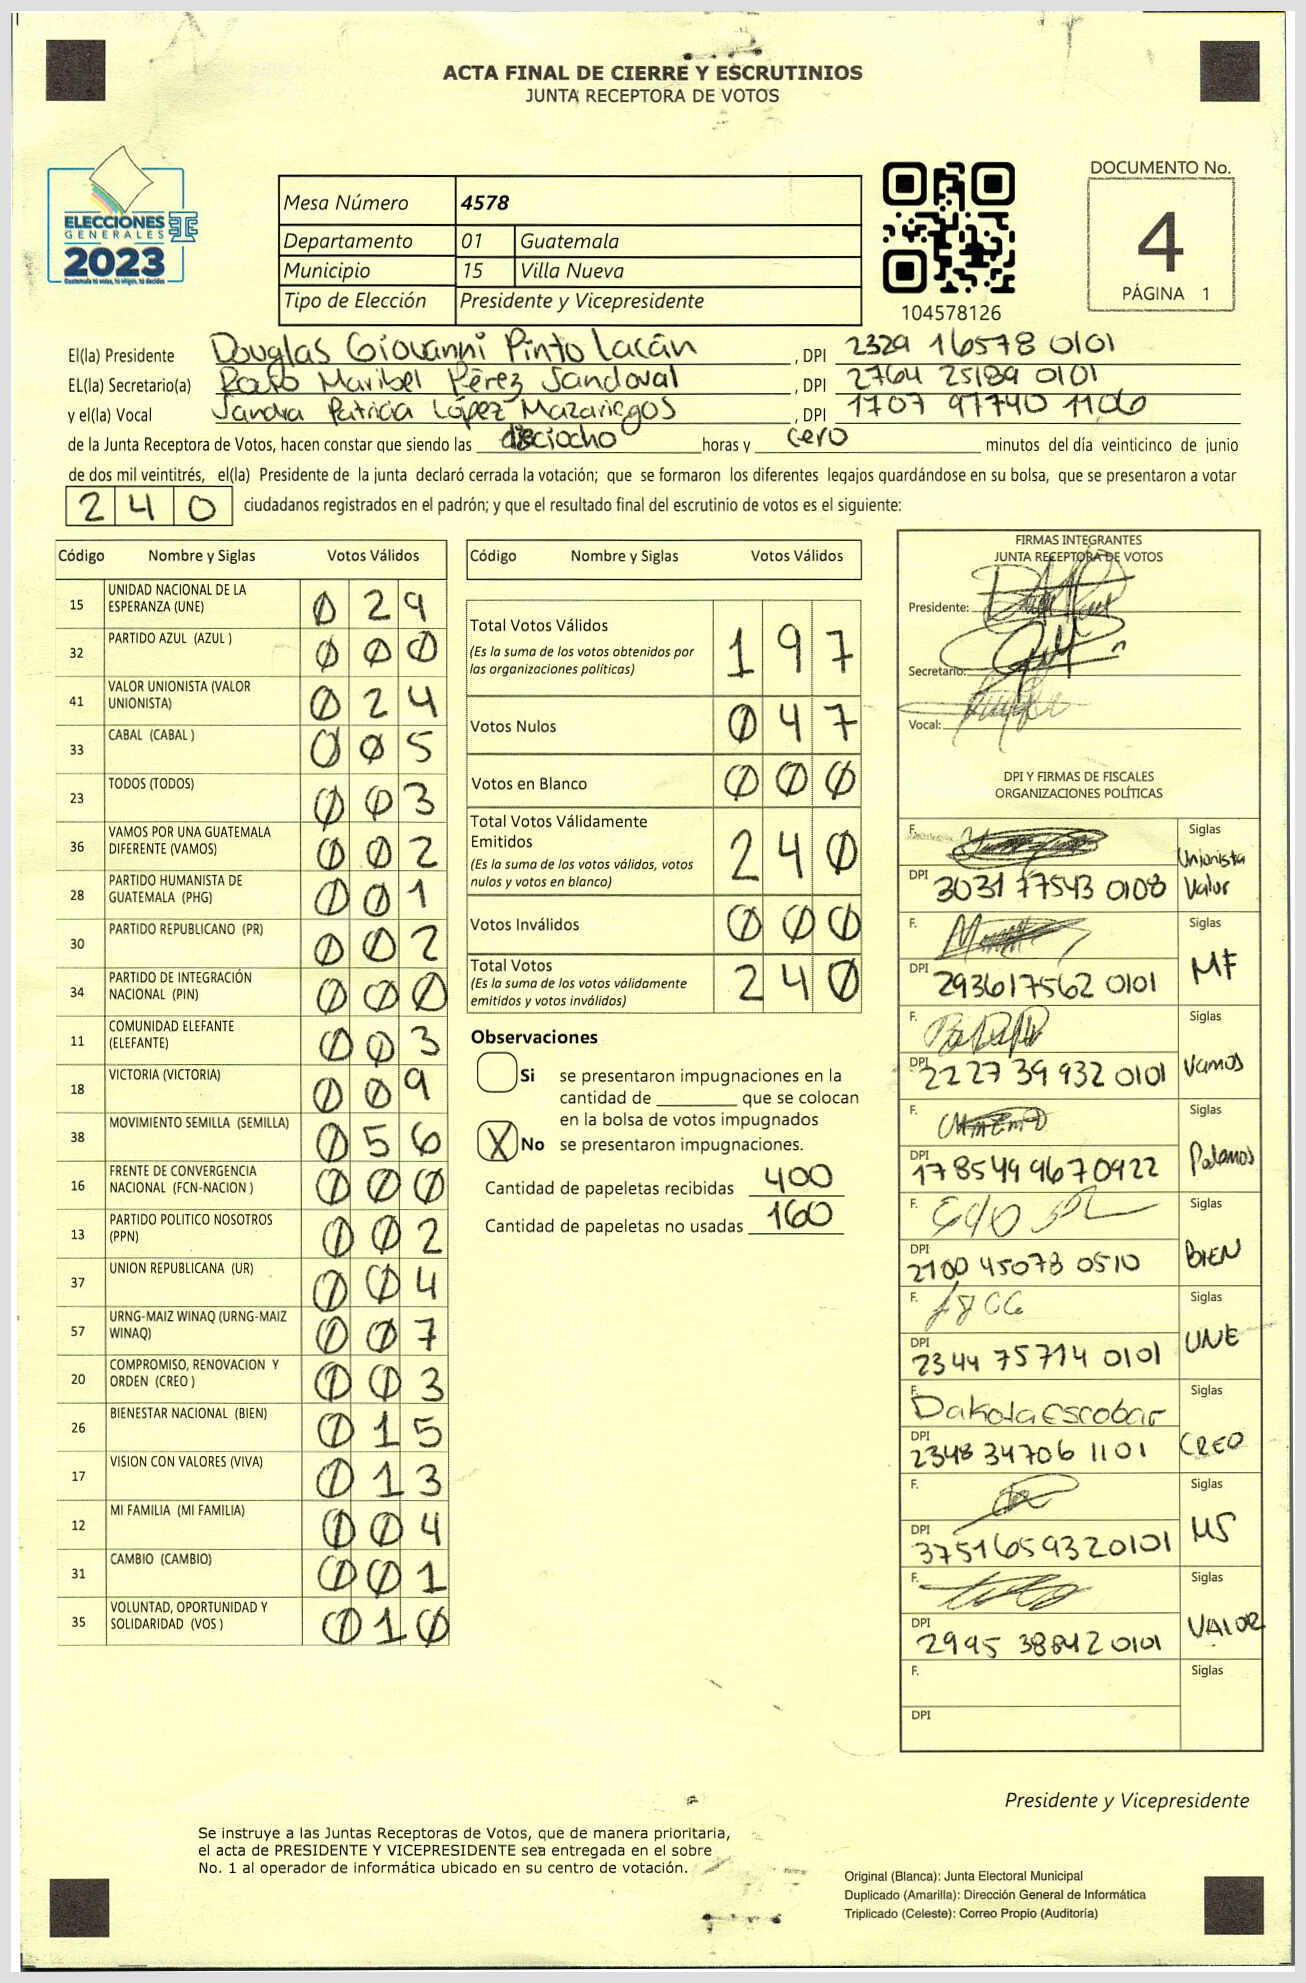 ACTA FINAL DE CIERRE Y ESCRUTINIOS
JUNTA RECEPTORA DE VOTOS
ELECCIONES
GENERALES
2023
Mesa Número 4578
Departamento 01 Guatemala
Municipio 15 Villa Nueva
Tipo de Elección Presidente y Vicepresidente
104578126
DOCUMENTO No.
4
PÁGINA 1
El(la) Presidente Douglas Giovanni Pinto Lacán, DPI 2329 16578 0101
EL(la) Secretario(a) Maribel Pérez Sandoval, DPI 2764 25189 0101
y el(la) Vocal Sandra Patricia López Mazariegos, DPI 1707 97740 1106
de la Junta Receptora de Votos, hacen constar que siendo las dieciocho horas y cero minutos del día veinticinco de junio
de dos mil veintitrés, el(la) Presidente de la junta declaró cerrada la votación; que se formaron los diferentes legajos guardándose en su bolsa, que se presentaron a votar
240 ciudadanos registrados en el padrón; y que el resultado final del escrutinio de votos es el siguiente:
Código Nombre y Siglas Votos Válidos
15 UNIDAD NACIONAL DE LA ESPERANZA (UNE) 029
32 PARTIDO AZUL (AZUL ) 000
41 VALOR UNIONISTA (VALOR UNIONISTA) 024
33 CABAL (CABAL ) 005
23 TODOS (TODOS) 003
36 VAMOS POR UNA GUATEMALA DIFERENTE (VAMOS) 002
28 PARTIDO HUMANISTA DE GUATEMALA (PHG) 001
30 PARTIDO REPUBLICANO (PR) 002
34 PARTIDO DE INTEGRACIÓN NACIONAL (PIN) 000
11 COMUNIDAD ELEFANTE (ELEFANTE) 003
18 VICTORIA (VICTORIA) 009
38 MOVIMIENTO SEMILLA (SEMILLA) 056
16 FRENTE DE CONVERGENCIA NACIONAL (FCN-NACION ) 000
13 PARTIDO POLITICO NOSOTROS (PPN) 002
37 UNION REPUBLICANA (UR) 004
57 URNG-MAIZ WINAQ (URNG-MAIZ WINAQ) 007
20 COMPROMISO, RENOVACION Y ORDEN (CREO ) 003
26 BIENESTAR NACIONAL (BIEN) 015
17 VISION CON VALORES (VIVA) 013
12 MI FAMILIA (MI FAMILIA) 004
31 CAMBIO (CAMBIO) 001
35 VOLUNTAD, OPORTUNIDAD Y SOLIDARIDAD (VOS ) 010
Código Nombre y Siglas Votos Válidos
Total Votos Válidos 197
(Es la suma de los votos obtenidos por
las organizaciones políticas)
Votos Nulos 047
Votos en Blanco 000
Total Votos Válidamente
Emitidos 240
(Es la suma de los votos válidos, votos
nulos y votos en blanco)
Votos Inválidos 000
Total Votos 240
(Es la suma de los votos válidamente
emitidos y votos inválidos)
Observaciones
Si se presentaron impugnaciones en la
cantidad de ________ que se colocan
en la bolsa de votos impugnados
X No se presentaron impugnaciones.
Cantidad de papeletas recibidas 400
Cantidad de papeletas no usadas 160
FIRMAS INTEGRANTES
JUNTA RECEPTORA DE VOTOS
Presidente:
Secretario:
Vocal:
DPI Y FIRMAS DE FISCALES
ORGANIZACIONES POLÍTICAS
F. Siglas Unionista Valor
DPI 3031 77543 0108
F. Siglas MF
DPI 2936175620101
F. Siglas Vamos
DPI 2227 39 932 0101
F. Siglas
DPI 1785499670922
F. Siglas BIEN
DPI 2100 45073 0510
F. Siglas UNE
DPI 2344 75714 0101
F. Dakota Escobar Siglas CREO
DPI 2348 34706 1101
F. Siglas MS
DPI 3751659320101
F. Siglas VALOR
DPI 2995 38842 0101
F. Siglas
DPI
Presidente y Vicepresidente
Se instruye a las Juntas Receptoras de Votos, que de manera prioritaria,
el acta de PRESIDENTE Y VICEPRESIDENTE sea entregada en el sobre
No. 1 al operador de informática ubicado en su centro de votación.
Original (Blanca): Junta Electoral Municipal
Duplicado (Amarilla): Dirección General de Informática
Triplicado (Celeste): Correo Propio (Auditoría)